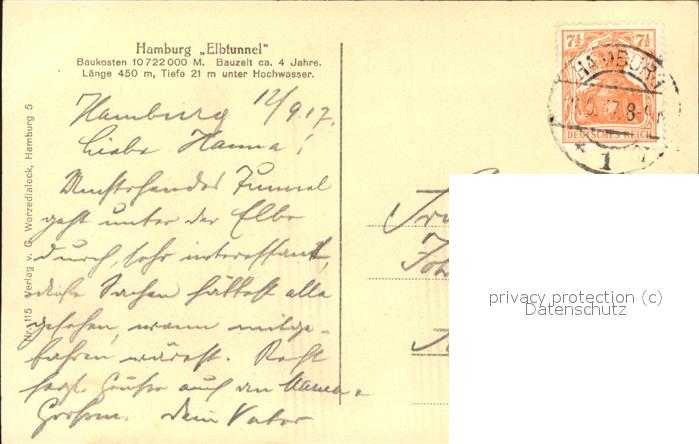 Hamburg „Elbtunnel“
Baukosten 10 722 000 M. Bauzeit ca. 4 Jahre.
Länge 450 m, Tiefe 21 m unter Hochwasser.
Hamburg 12/9.17.
Liebe Hanna!
Umstehender Tunnel
geht unter der Elbe
durch, sehr interessant,
diese Sachen hättest alle
gesehen, wenn mitge-
fahren wärest. Recht
herzl. Grüße auch an Mama
Dein Vater
Nr. 115 Verlag v. G. Worzedialeck, Hamburg 5
7½ 7½
DEUTSCHES REICH
HAMBURG
17. 8-9
1
privacy protection (c)
Datenschutz